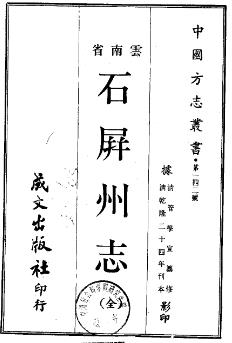 中國方志叢書·第一四二號
據清管學宣纂修
清乾隆二十四年刊本影印
雲南省
石屏州志
(全)
成文出版社印行